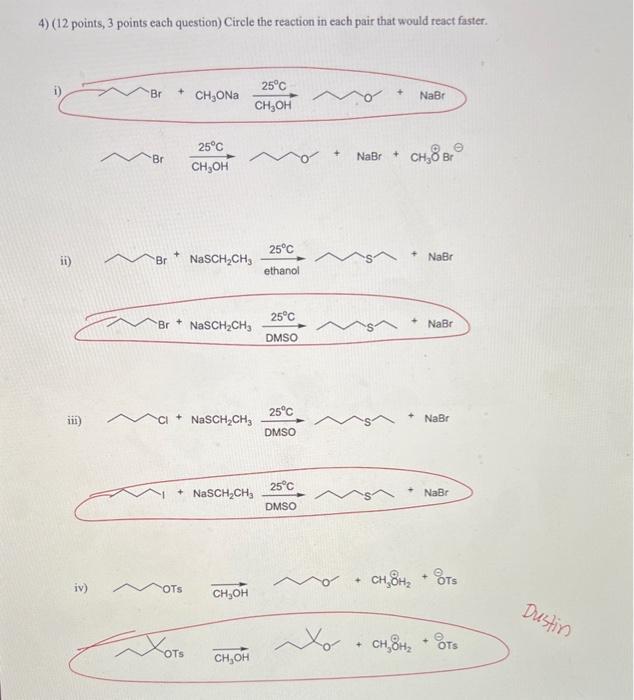 4) (12 points, 3 points each question) Circle the reaction in each pair that would react faster.
i) Br + CH₃ONa 25°C CH₃OH O + NaBr
Br 25°C CH₃OH O + NaBr + CH₃O⊕ Br⊖
ii) Br + NaSCH₂CH₃ 25°C ethanol S + NaBr
Br + NaSCH₂CH₃ 25°C DMSO S + NaBr
iii) Cl + NaSCH₂CH₃ 25°C DMSO S + NaBr
I + NaSCH₂CH₃ 25°C DMSO S + NaBr
iv) OTs CH₃OH O + CH₃O⊕H₂ + ⊖OTs
OTs CH₃OH O + CH₃O⊕H₂ + ⊖OTs
Dustin